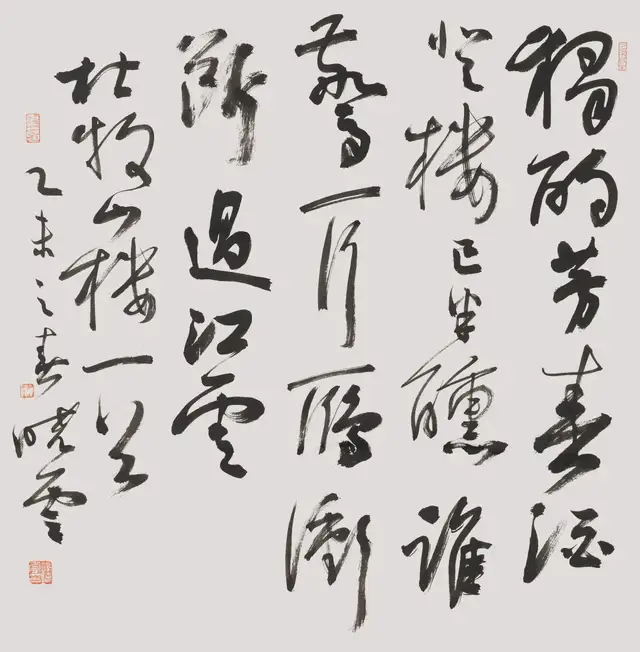 獨酌芳春酒
登楼已半醺誰
驚一行鴈衝
断過江雲
杜牧山楼一首
乙未之春曉雲